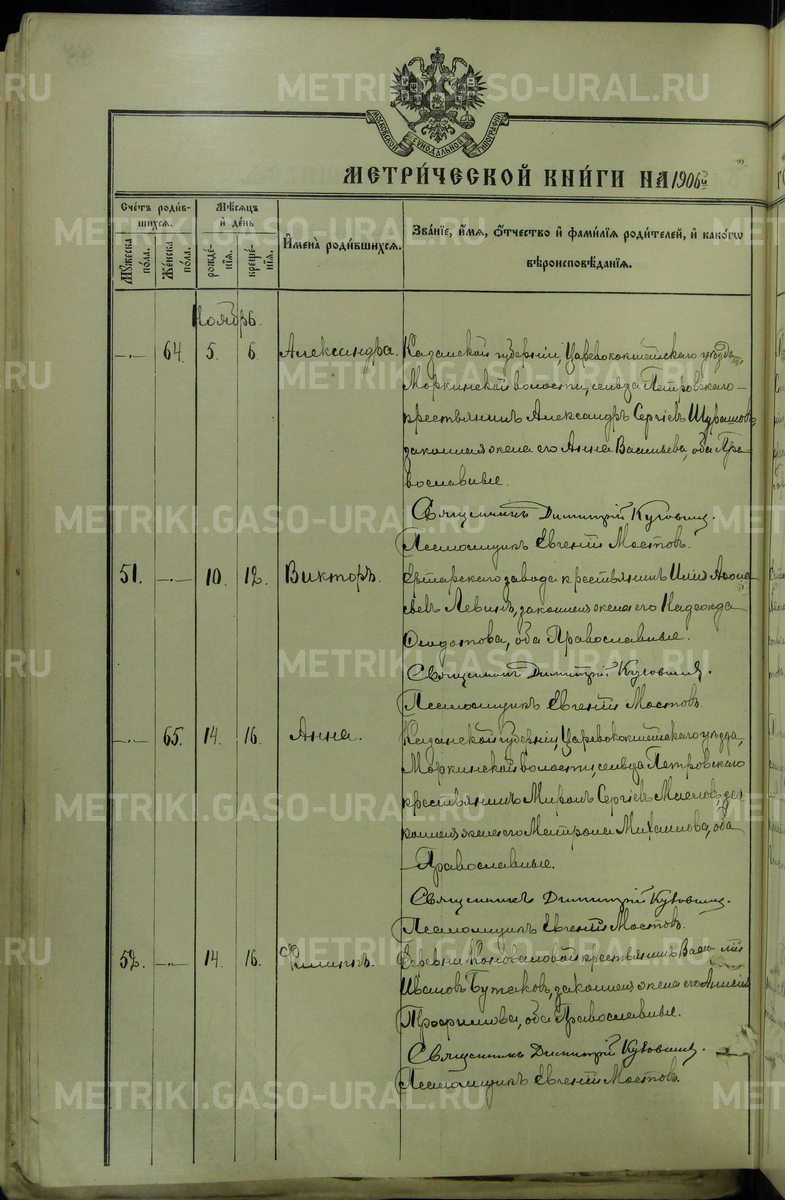 МОСКОВСКОЙ СѴНОДАЛЬНОЙ ТИПОГРАФІИ
МЕТРИ́ЧЕСКОЙ КНИ́ГИ НА 1906 г.
Сче́тъ роди́вшихсѧ.
Мꙋ́жеска по́ла.
Же́нска по́ла.
Мѣ́сѧцъ и҆ де́нь
рожде́нїѧ.
креще́нїѧ.
И҆мена̀ роди́вшихсѧ.
Зва́нїе, и҆́мѧ, ѻ҆́тчество и҆ фами́лїѧ роди́телей, и҆ како́гѡ вѣроисповѣ́данїѧ.
Ноябрь.
—„— 64. 5. 6. Александра. Казанской губерніи, Царевококшайскаго уѣзда,
Моркинской волости, сельца Петровскаго
крестьянинъ Александръ Сергіевъ
законная жена его Анна Васильева, оба Пра-
вославные.
Священникъ Димитрій
Псаломщикъ Евгеній Мостовъ.
51. —„— 10. 12. Викторъ. Ертарскаго завода крестьянинъ Илія
Левинъ, законная жена его Надежда
Ѳеодотова, оба Православные.
Священникъ Димитрій
Псаломщикъ Евгеній Мостовъ.
—„— 65. 14. 16. Анна. Казанской губерніи, Царевококшайскаго уѣзда,
Моркинской волости, сельца Петровскаго
крестьянинъ Миронъ Сергіевъ за-
конная жена его Матрона Михаилова, оба
Православные.
Священникъ Димитрій
Псаломщикъ Евгеній Мостовъ.
52. —„— 14. 16. Филиппъ. Деревни Коноваловой крестьянинъ Василій
Ивановъ Бутаковъ, законная жена его
Трофимова, оба Православные.
Священникъ Димитрій
Псаломщикъ Евгеній Мостовъ.
METRIKI.GASO-URAL.RU